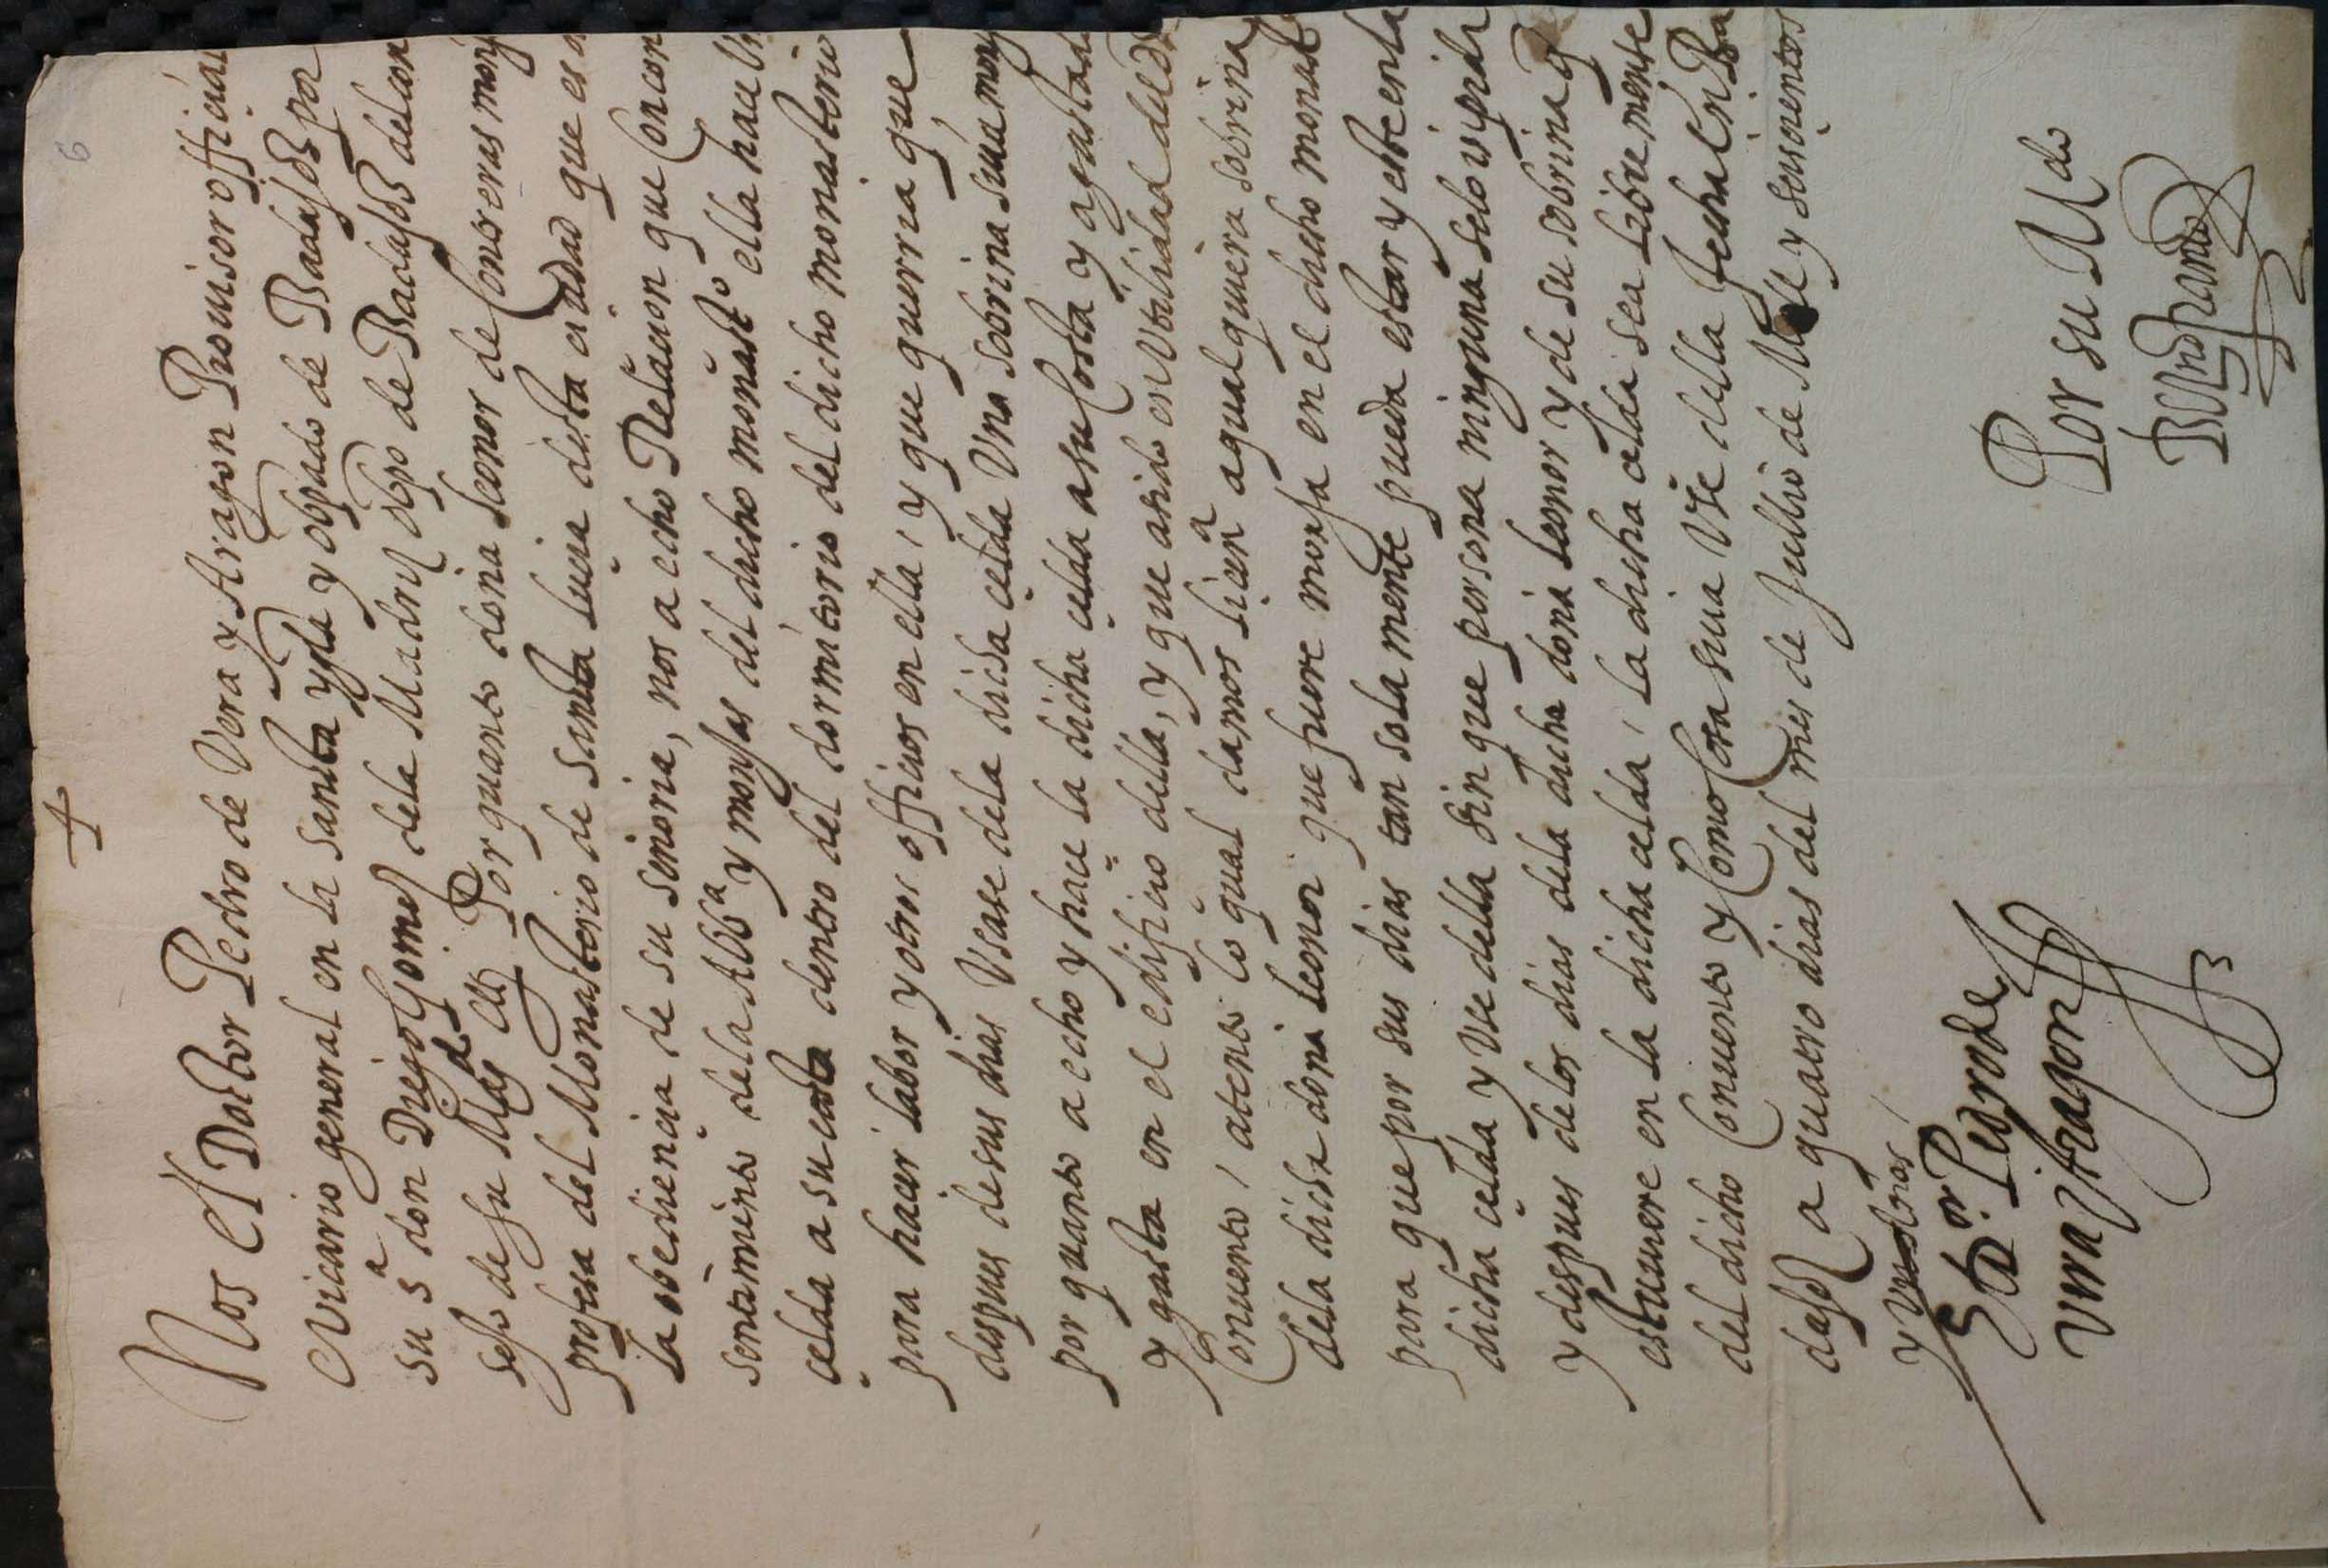 6
Nos el Doctor Pedro de Vera y Aragon Prouisor official
Vicario general en la sancta ygla y obpado de Badajoz por
su sª don Diego Gomez dela Madriz obpo de Badajoz del con
sejo de su Magd etc Por quanto doña Leonor de Contreras monj
profesa del Monasterio de sancta Lucia desta ciudad que es a
la obediençia de su señoria, nos a echo Relaçion que con con
sentimiento dela Abbª y monjas del dicho monastº ella haçe Vn
çelda a su costa dentro del dormitorio del dicho monasterio
para haçer labor y otros offiçios en ella / y que querria que
despues de sus dias Vsase dela dicha çelda Vna sobrina suia monj
por quanto a echo y haçe la dicha çelda a su Costa y a gastad
y gasta en el edifiçio della, y que a sido en Vtilidad deld
Conuento / atento lo qual damos liçenª a qualquiera sobrina
dela dicha doña Leonor que fuere monja en el dicho monast
para que por sus dias tan solamente pueda estar y este en la
dicha çelda y Vse della sin que persona ninguna se lo ynpida
y despues delos dias dela dicha doña Leonor y de su sobrina q
estuuiere en la dicha celda / la dicha celda sea libremente
del dicho Conuento y Como Cosa suia Vse della fecha en Ba
dajoz a quatro dias del mes de Jullio de Mill y seiscientos
y
El Dor. Pedro de
Vera y Aragon
Por su Mdo